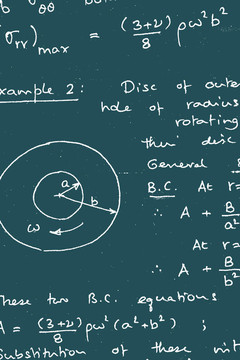 σθθ
σrr)max = (3+ν)/8 ρω²b²
xample 2: Disc of oute
hole of radius
rotating
thin disc
General
B.C. At r=
∴ A + B/a²
At r=
∴ A + B/b²
a
b
ω
hese two B.C. equations
A = (3+ν)/8 ρω² (a²+b²) ;
Substitution of these